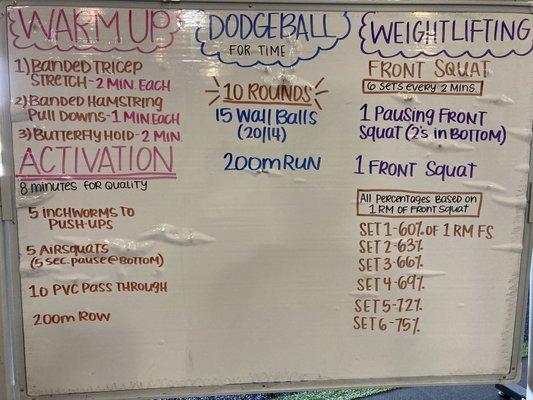 WARM UP
1) BANDED TRICEP
STRETCH - 2 MIN. EACH
2) BANDED HAMSTRING
PULL DOWNS - 1 MIN. EACH
3) BUTTERFLY HOLD - 2 MIN.
ACTIVATION
8 MINUTES FOR QUALITY
5 INCHWORMS TO
PUSH-UPS
5 AIRSQUATS
(5 SEC. PAUSE @ BOTTOM)
10 PVC PASS THROUGH
200m ROW
DODGEBALL
FOR TIME
10 ROUNDS
15 WALL BALLS
(20/14)
200m RUN
WEIGHTLIFTING
FRONT SQUAT
6 SETS EVERY 2 MINS.
1 PAUSING FRONT
SQUAT (2's IN BOTTOM)
1 FRONT SQUAT
All PERCENTAGES BASED ON
1 RM OF FRONT SQUAT
SET 1-60% OF 1 RM FS
SET 2-63%
SET 3-66%
SET 4-69%
SET 5-72%
SET 6-75%